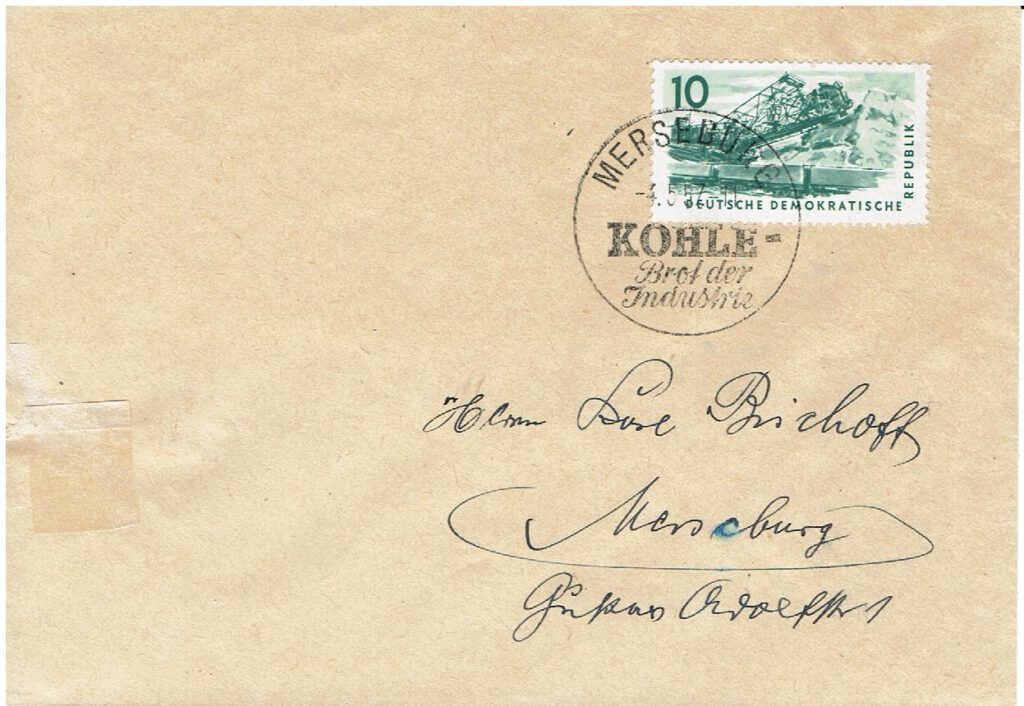 10
DEUTSCHE DEMOKRATISCHE
REPUBLIK
MERSEBURG
-4.5.57-11
KOHLE-
Brot der
Industrie
Herrn Bischoff
Merseburg
Gustav Adolfstr 1